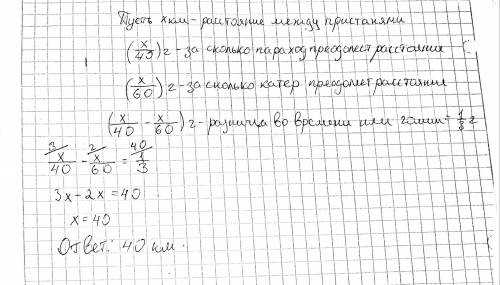 Пусть x км - растояние между пристанями
(x/40) г - за сколько параход преодолеет расстояние
(x/60) г - за сколько катер преодолеет расстояние
(x/40 - x/60) г - разница во времени или 20 мин = 1/3 г
3/ x/40 - 2/ x/60 = 40/ 1/3
3x - 2x = 40
x = 40
Ответ: 40 км.